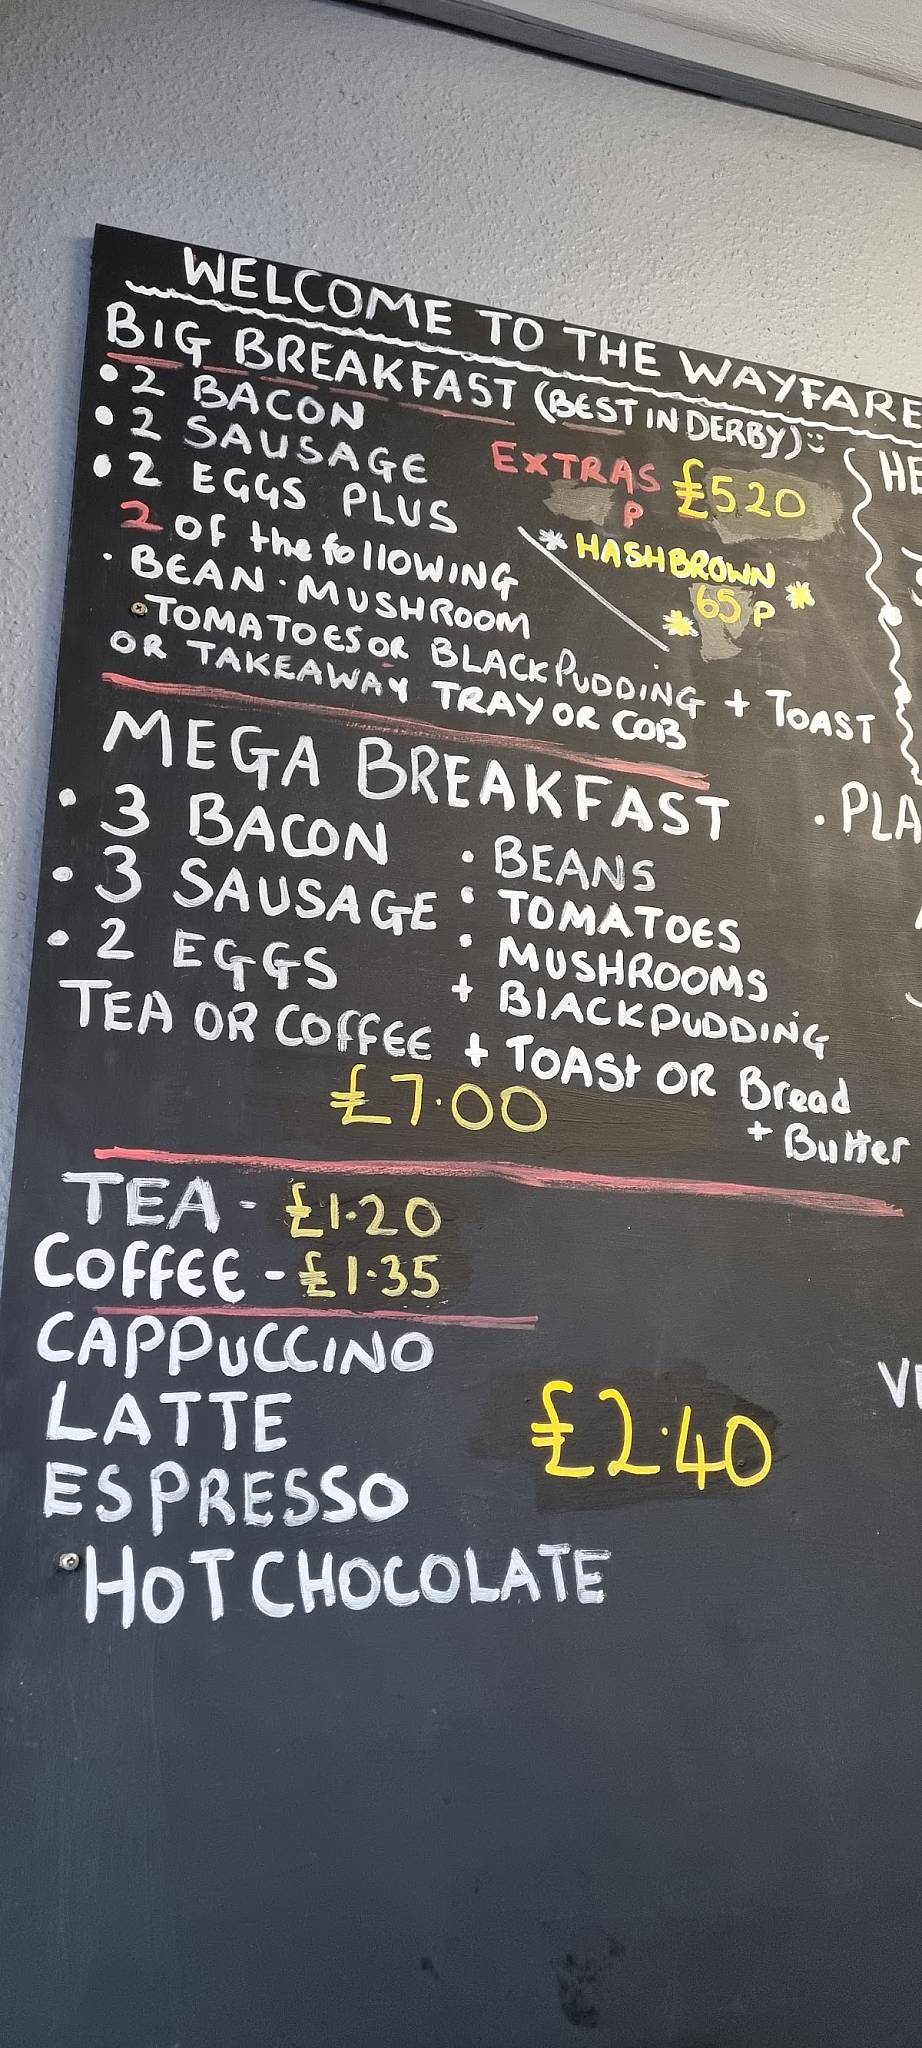 WELCOME TO THE WAYFARE
BIG BREAKFAST (BEST IN DERBY)
• 2 BACON
• 2 SAUSAGE
• 2 EGGS PLUS
EXTRAS £520
P
2 OF the following
* HASHBROWN *
* 65 P
· BEAN · MUSHROOM
TOMATOES OR BLACK PUDDING + TOAST
OR TAKEAWAY TRAY OR COB
HE
MEGA BREAKFAST
• 3 BACON
• 3 SAUSAGE
• 2 EGGS
• BEANS
• TOMATOES
• MUSHROOMS
+ BLACK PUDDING
TEA OR COFFEE + TOAST OR Bread
+ Butter
£7.00
. PLA
TEA - £1.20
COFFEE - £1.35
CAPPUCCINO
LATTE
£2.40
ESPRESSO
HOT CHOCOLATE